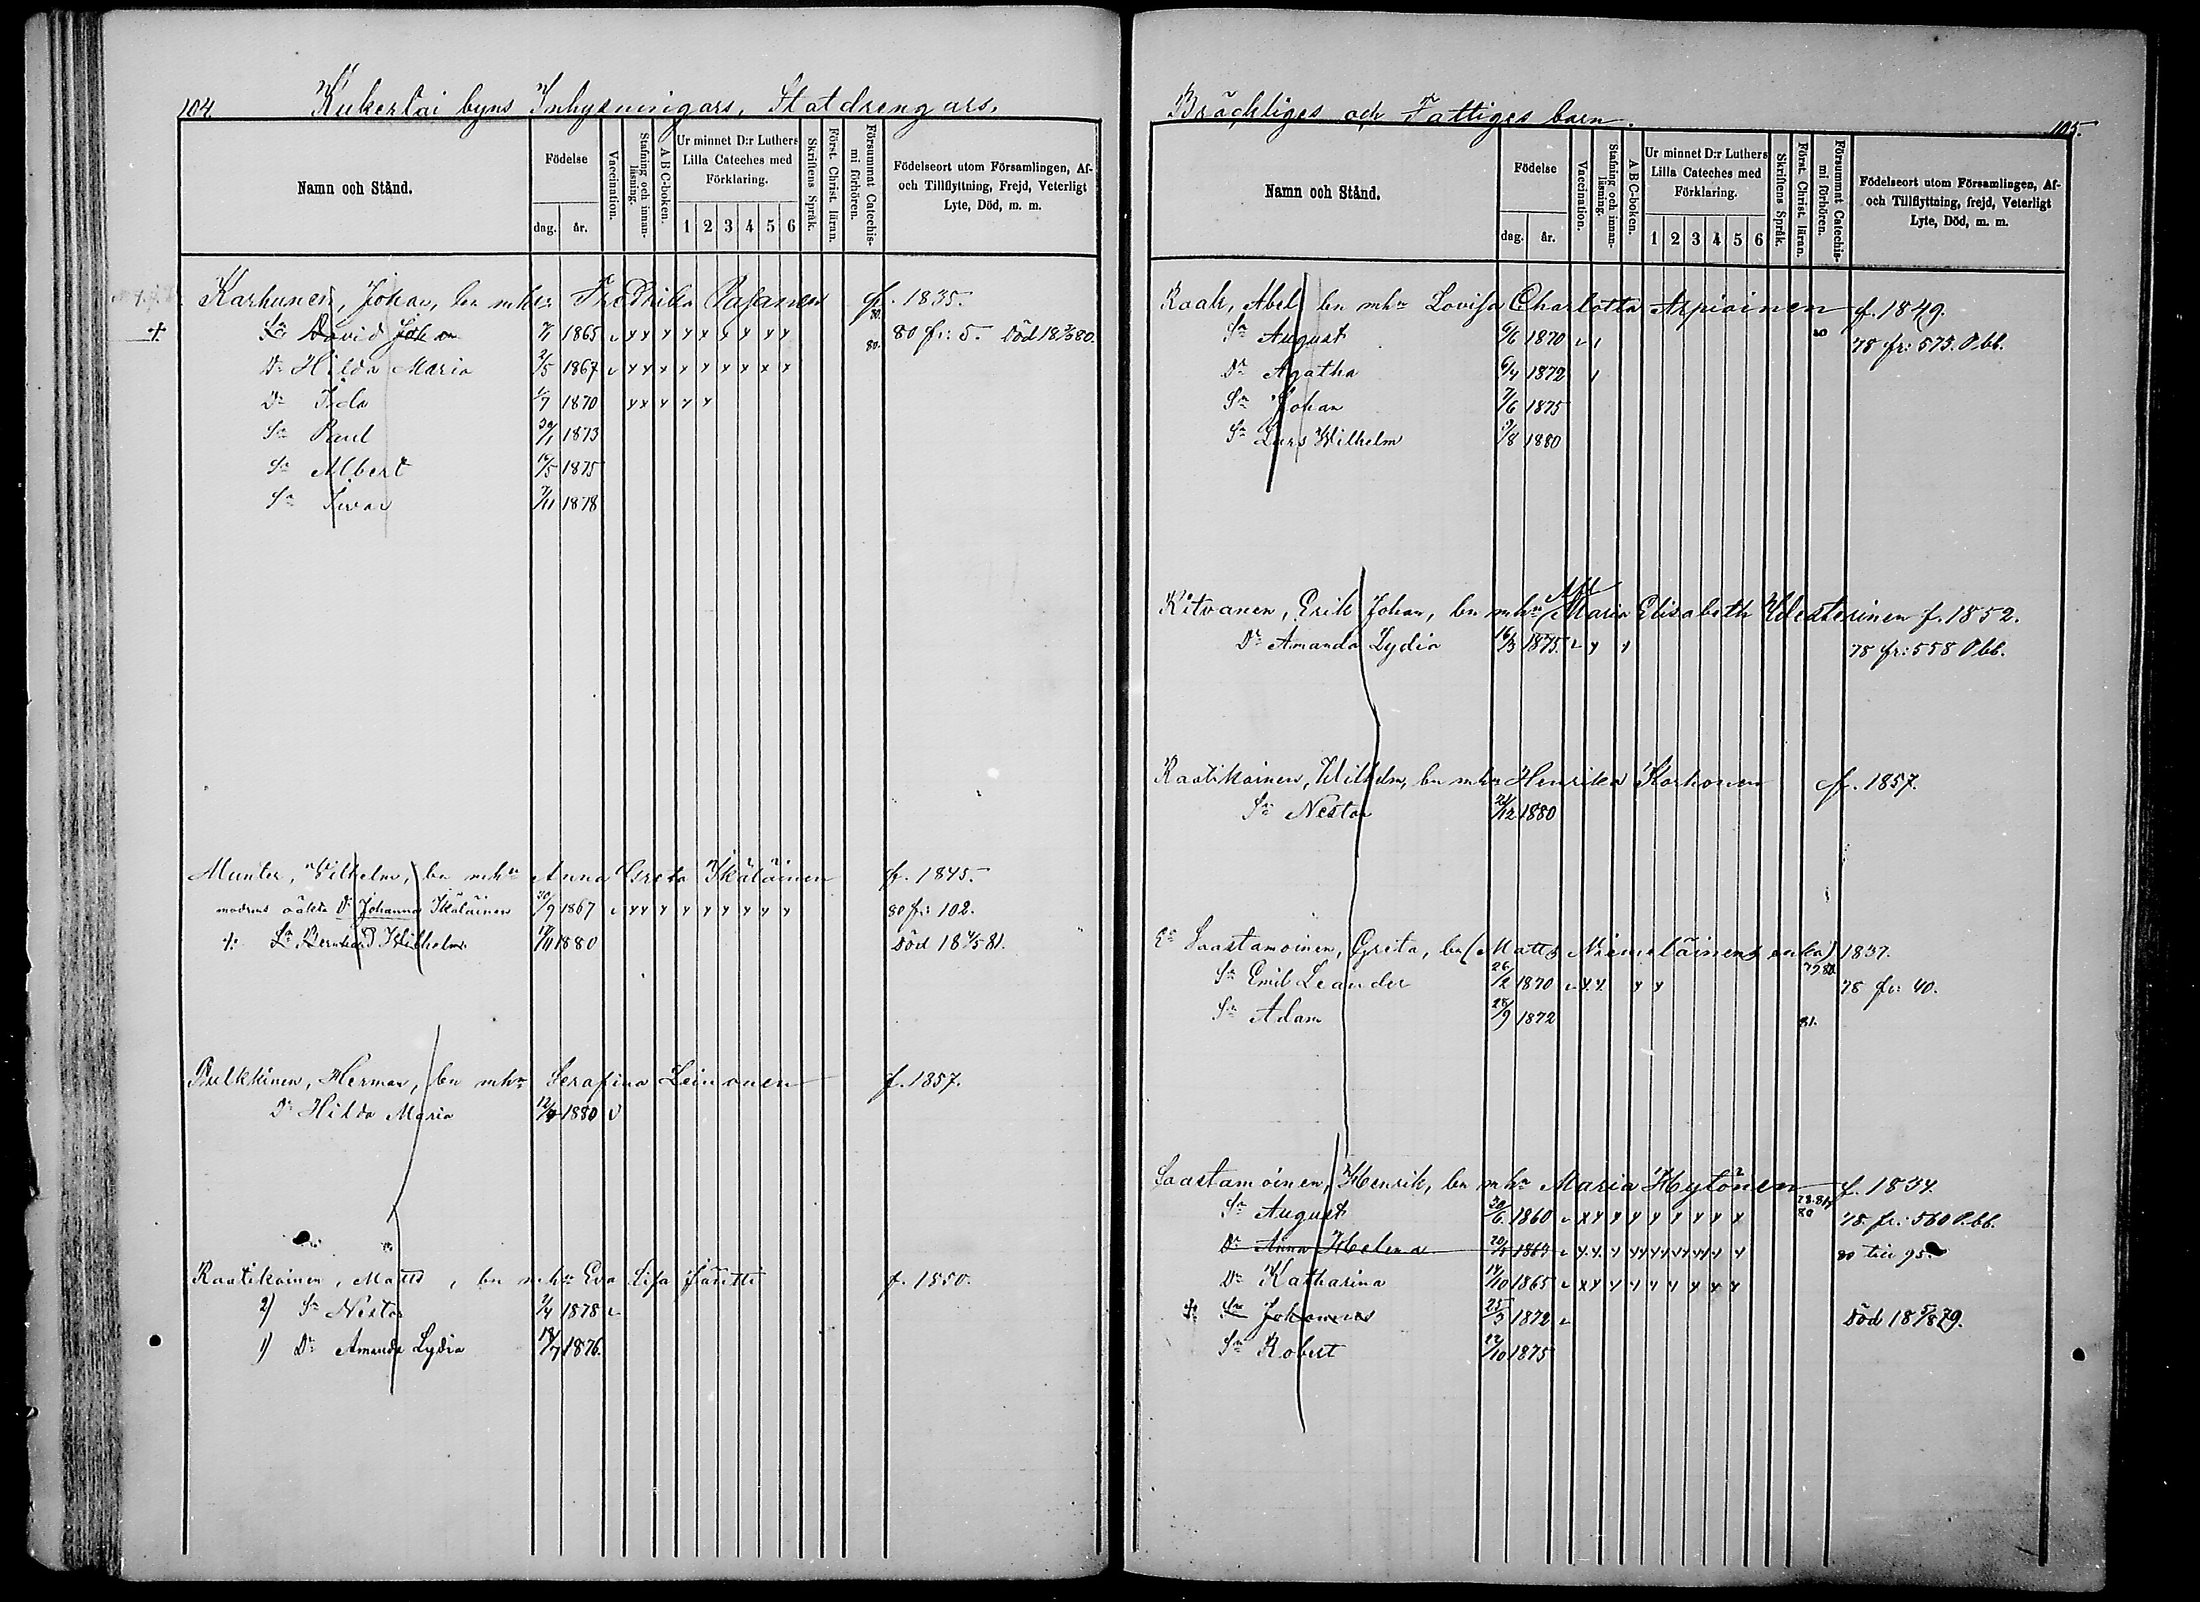 104. Kukerlai byns Inhysningars, Statdrengars,
Namn och Stånd.
Födelse
dag. år.
Vaccination.
Stafning och innanläsning.
A B C-boken.
Ur minnet D:r Luthers Lilla Cateches med Förklaring.
1 2 3 4 5 6
Skriftens Språk.
Först. Christ. läran.
Försummat Catechismi förhören.
Födelseort utom Församlingen, Af- och Tillflyttning, Frejd, Veterligt Lyte, Död, m. m.
Karhunen, Johan, bn mhu Fredrika f. 1835.
+ Sn David Johan 1865 v x x x x x x x x x 80. 80 fr: 5. Död 18 80.
Dr Hilda Maria 2/5 1867 v x x x x x x x x x 80.
Dr Ida 1/7 1870 x x x x x
Sn Paul 30/1 1873
Sn Albert 17/5 1875
Sn Iivar 7/11 1878
Munter, Wilhelm, bn mhu Anna Greta Ikäläinen f. 1845.
modrens oäkta Dr Johanna Ikäläinen 30/9 1867 v x x x x x x x x x 80 fr: 102.
+ Sn Bernhard Wilhelm 17/11 1880 Död 18 4/5 81.
Pulkkinen, Herman, bn mhu Serafina Leinonen f. 1857.
Dr Hilda Maria 1880 v
Raatikainen, Matts, bn mhu Eva Lisa Jäntti f. 1850.
2) Sn Nestor 2/4 1878 v
1) Dr Amanda Lydia 18/7 1876.
Bräckliges och Fattiges barn. 105.
Namn och Stånd.
Födelse
dag. år.
Vaccination.
Stafning och innanläsning.
A B C-boken.
Ur minnet D:r Luthers Lilla Cateches med Förklaring.
1 2 3 4 5 6
Skriftens Språk.
Först. Christ. läran.
Försummat Catechismi förhören.
Födelseort utom Församlingen, Af- och Tillflyttning, frejd, Veterligt Lyte, Död, m. m.
Raak, Abel bn mhu Lovisa Charlotta Arpiainen f. 1849.
Sn August 6/6 1870 v 1 80 78 fr: 575. O.bb.
Dr Agatha 6/4 1872 1
Sn Johan 7/6 1875
Sn Lars Wilhelm 9/8 1880
Kitvanen, Erik Johan, bn mhu Maria Elisabeth f. 1852.
Dr Amanda Lydia 16/3 1875. v x x 78 fr: 558 O.bb.
Raatikainen, Wilhelm, bn mhu Henrika Korhonen f. 1857.
Sn Nestor 21/12 1880
Ea Saastamoinen, Greta, bn (Matts Niemeläinens enka) 1837.
Sn Emil Leander 26/2 1870 v x x x x 79 80 78 fr: 40.
Sn Adam 28/9 1872 81.
Saastamoinen, Henrik, bn mhu Maria Hytönen f. 1834.
Sn August 20/6 1860 v x x x x x x x x x 80 78. fr: 560 O.bb.
Dr Anna Helena v x x x x x x x x x 80 till 95.
Dr Katharina 14/10 1865 v x x x x x x x x x
+ Sn Johannes 25/3 1872 v Död 18 79.
Sn Robert 22/10 1875